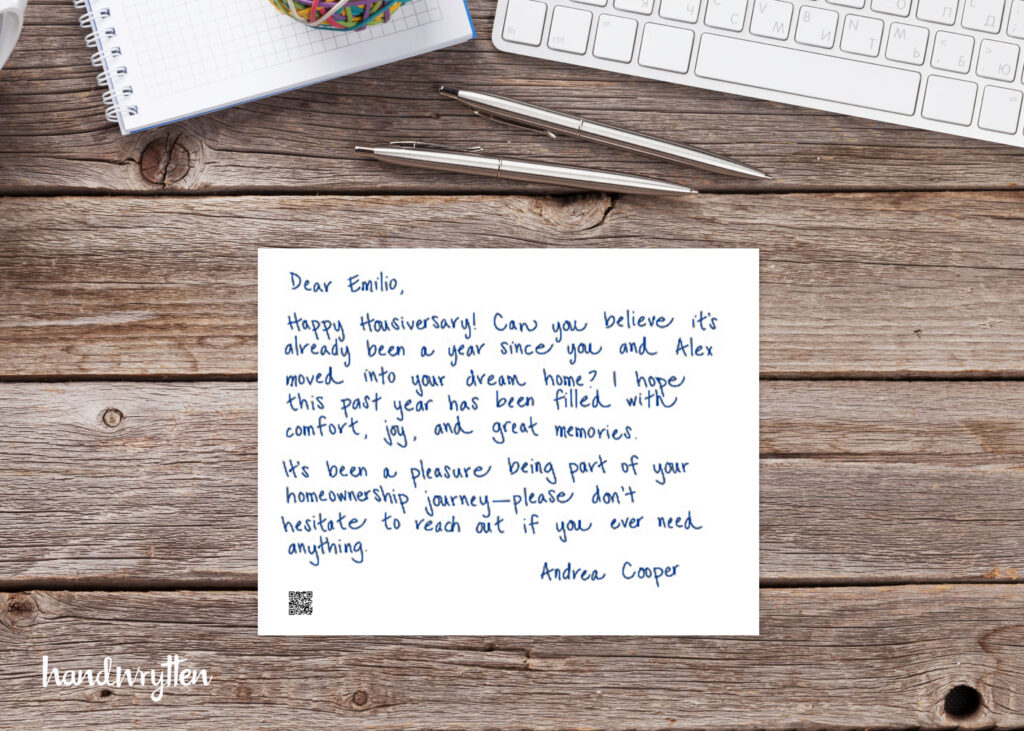 Dear Emilio,
Happy Housiversary! Can you believe it's
already been a year since you and Alex
moved into your dream home? I hope
this past year has been filled with
comfort, joy, and great memories.
It's been a pleasure being part of your
homeownership journey—please don't
hesitate to reach out if you ever need
anything.
Andrea Cooper
handwrytten